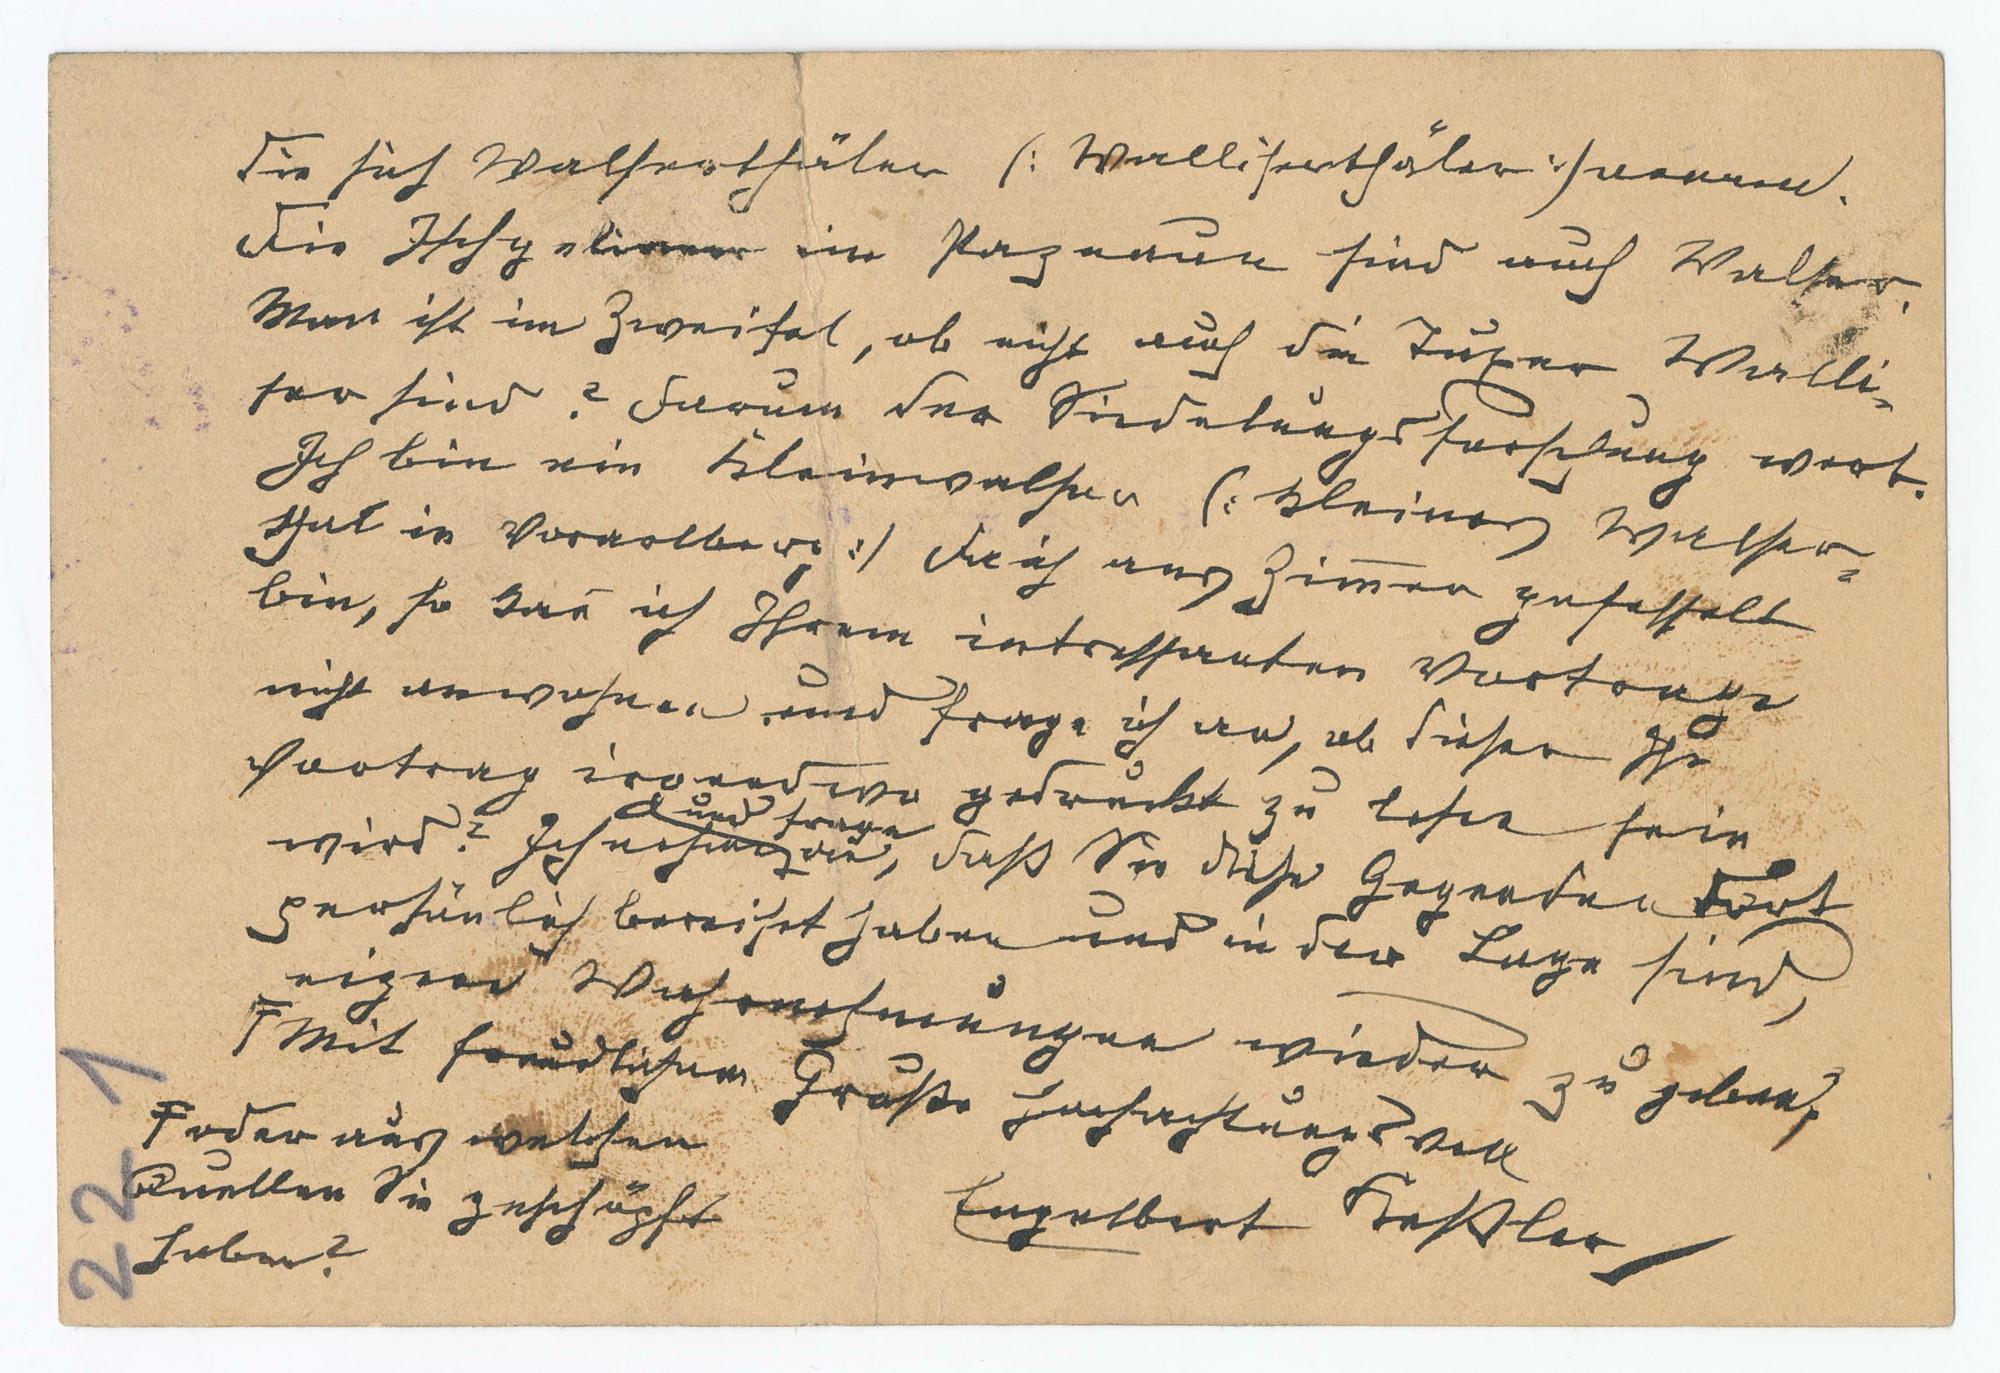 die sich Walserthäler (: Walliserthäler :) nennen.
Die Ischgeliner im Paznaun sind auch Walser.
Man ist im Zweifel, ob nicht auch die Tuxer Walli-
ser sind? Darum der Siedelungsforschung wert.
Ich bin ein Kleinwalser (: Kleines Walser-
thal in Vorarlberg :) Da ich ans Zimmer gefesselt
bin, so kan̄ ich Ihrem intressanten Vortrage
nicht anwohnen und frage ich an, ob dieser Ihr
Vortrag irgendwo gedruckt zu lesen sein
und frage
wird? Ich nehme an, daß Sie diese Gegenden dort
persönlich bereist haben und in der Lage sind,
eigene Wahrnehmungen wieder zu geben?
Mit freundlichem Gruße hochachtungsvoll
oder aus welchen
Quellen Sie geschöpft
haben?
Engelbert Keßler
22 1